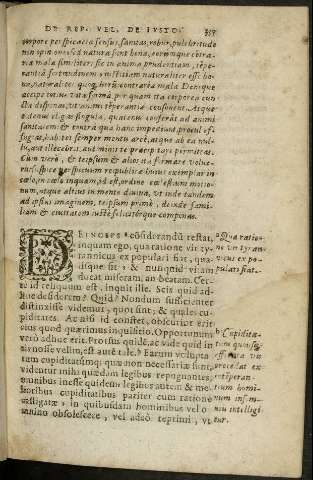 DE REP. VEL. DE IVSTO.
corpore perspicacia sensus, sanitas, robur, pulchritudo
natura sunt bona, eorumque contra-
ria mala similiter: sic in anima prudentiam, tempe-
rantiā fortitudinem iustitiam naturaliter esse bo-
na, naturaliter quoque horū contraria mala. Denique
accipe totius vitæ formā per quam ita corporea cun-
cta disponas, vt animi temperantiæ consonent. Atque
eligas singula, quatenus conferāt ad animi
sanitatem: & contra quæ hanc impediunt, procul ef-
fugias, hæc tibi semper monita arcē, atque ab ea nul-
la, aut illecebris aut minis te præcipitari permittas.
Cum verò, & teipsum & alios ita formare volue-
ris, suspice perspicuum reipublicæ huius exemplar in
cœlo, in cœlo inquam, id est, ordine cœlestium motio-
num, atque altius in mente diuina, vt inde tandem
ad ipsius imaginem, teipsum primò, deinde fami-
liam & ciuitatem iustè feliciterque componas.
DEINCEPS cōsiderandū restat,
inquam ego, qua ratione vir ty-
rannicus ex populari fiat, qua-
lisque sit: & nunquid vitam
ducat miseram, an beatam. Cer-
tè id reliquum est, inquit ille. Scis quid ad-
huc desiderem? Quid? Nondum sufficienter
distinxisse videmur, quot sint, & quales cu-
piditates. At nisi id constet, obscurior erit
eius quod quærimus inquisitio. Opportunum
verò adhuc erit. Prorsus quidē, ac vide quid in
his nosse velim, est autē tale. Earum volupta-
tum cupiditatumque quæ non necessariæ sunt,
videntur mihi quædam legibus repugnantes,
omnibus inesse quidem: legibus autem & me-
lioribus cupiditatibus pariter cum ratione
castigatæ, in quibusdam hominibus vel o-
mnino obsolescere, vel adeò reprimi, vt
a Qua ratio-
ne vir tyran-
nicus ex po-
pulari fiat.
b Cupidita-
tum
præcedat ex
intēperan-
tium homi-
num insom-
nijs intelligi-
tur.